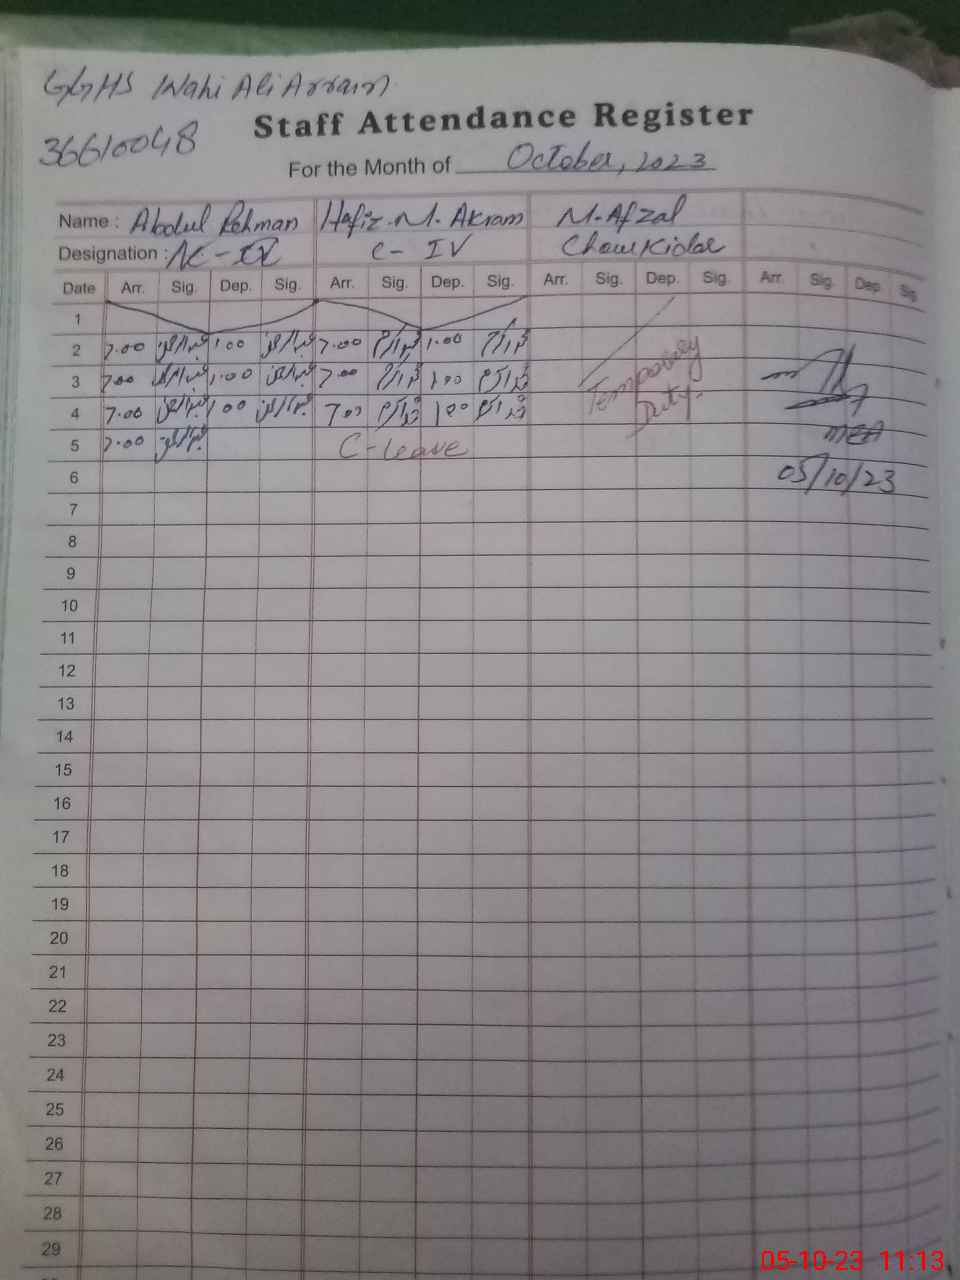 GGHS Wahi Ali Arrain
36610048
Staff Attendance Register
For the Month of October, 2023
Name : Abdul Rehman Hafiz M. Akram M. Afzal
Designation : C-IV Chowkidar
Date Arr. Sig. Dep. Sig. Arr. Sig. Dep. Sig. Arr. Sig. Dep. Sig. Arr. Sig. Dep. Sig.
1
2 7.00 عبدالرحمن 1.00 عبدالرحمن 7.00 محمد اکرم 1.00 محمد اکرم
3 7.00 عبدالرحمن 1.00 عبدالرحمن 7.00 محمد اکرم 1.00 محمد اکرم
4 7.00 عبدالرحمن 1.00 عبدالرحمن 7.00 محمد اکرم 1.00 محمد اکرم
Temporary
Duty.
5 7.00 عبدالرحمن C-leave MEA
6 05/10/23
7
8
9
10
11
12
13
14
15
16
17
18
19
20
21
22
23
24
25
26
27
28
29
05-10-23 11:13